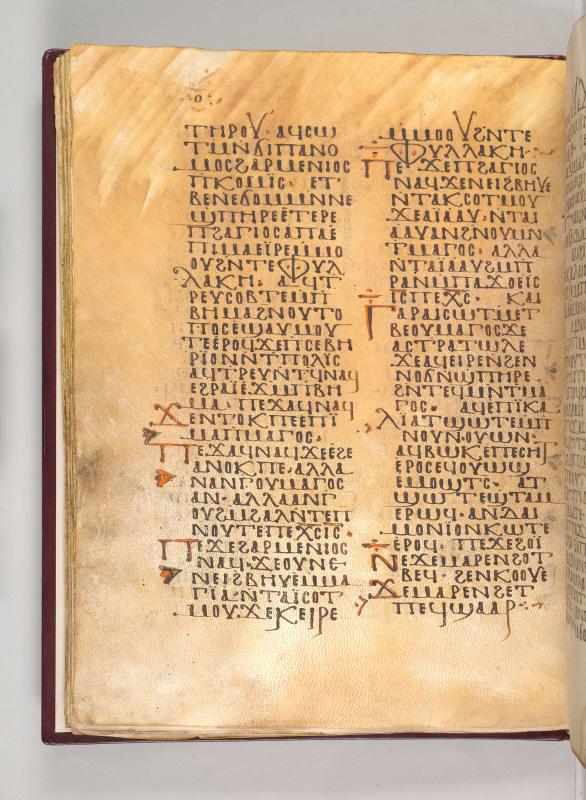 ⲟ
ⲧⲏⲣⲟⲩ· ⲁϥⲥⲱ
ⲧⲙⲛ̄ϭⲓⲡⲁⲛⲟ
ⲙⲟⲥϩⲁⲣⲙⲉⲛⲓⲟⲥ
ⲡⲕⲟⲙⲓ̈ⲥ· ⲉⲧ
ⲃⲉⲛⲉϭⲟⲙⲙⲛⲛⲉ
ϣⲡⲏⲣⲉⲉⲧⲉⲣⲉ
ⲡϩⲁⲅⲓⲟⲥⲁⲡⲁⲉ
ⲡⲓⲙⲁⲉⲓ̈ⲣⲉⲙⲙⲟ
ⲟⲩϩⲛⲧⲉⲫⲩⲗ
ⲗⲁⲕⲏ· ⲁϥⲧ
ⲣⲉⲩⲥⲟⲃⲧⲉⲙⲡ
ⲃⲏⲙⲁϩⲛⲟⲩⲧⲟ
ⲡⲟⲥⲉϣⲁⲩⲙⲟⲩ
ⲧⲉⲉⲣⲟϥϫⲉⲡⲥⲉⲃⲏ
ⲣⲓ̈ⲟⲛⲛ̄ⲧⲡⲟⲗⲓ̈ⲥ
ⲁϥⲧⲣⲉⲩⲛ̄ⲧϥⲛⲁϥ
ⲉϩⲣⲁⲓ̈ⲉϫⲙⲡⲃⲏ
ⲙⲁ· ⲡⲉϫⲁϥⲛⲁϥ
ϫⲉⲛⲧⲟⲕⲡⲉⲉⲡⲓ̈
ⲙⲁⲡⲙⲁⲅⲟⲥ·
ⲡⲉϫⲁϥⲛⲁϥϫⲉⲉϩⲉ
ⲁⲛⲟⲕⲡⲉ· ⲁⲗⲗⲁ
ⲛⲁⲛⲅⲟⲩⲙⲁⲅⲟⲥ
ⲁⲛ· ⲁⲗⲗⲁⲁⲛⲅ
ⲟⲩϩⲙϩⲁⲗⲛ̄ⲧⲉⲡ
ⲛⲟⲩⲧⲉⲡⲉⲭ̅ⲥ̅ⲓ̅ⲥ̅
ⲡⲉϫⲉϩⲁⲣⲙⲉⲛⲓⲟⲥ
ⲛⲁϥ· ϫⲉⲟⲩⲛⲉ
ⲛⲉⲓϩⲃⲏⲩⲉⲙⲙⲁ
ⲅⲓ̈ⲁⲛ̄ⲧⲁⲓ̈ⲥⲟⲧ
ⲙⲟⲩ· ϫⲉⲕⲉⲓⲣⲉ
ⲙⲙⲟⲟⲩϩⲛⲧⲉ
ⲫⲩⲗⲗⲁⲕⲏ·
ⲡⲉϫⲉⲡϩⲁⲅⲓⲟⲥ
ⲛⲁϥϫⲉⲛⲉⲓϩⲃⲏⲩⲉ
ⲛⲧⲁⲕⲥⲟⲧⲙⲟⲩ
ϫⲉⲁⲓ̈ⲁⲁⲩ· ⲛⲧⲁⲓ
ⲁⲁⲩⲁⲛϩⲛⲟⲩⲙⲛ
ⲧⲙⲁⲅⲟⲥ· ⲁⲗⲗⲁ
ⲛ̄ⲧⲁⲓ̈ⲁⲁⲩϩⲙⲡ
ⲣⲁⲛⲙⲡⲁϫⲟⲉⲓ̈ⲥ
ⲓ̅ⲥ̅ⲡⲉⲭ̅ⲥ̅· ⲕⲁⲓ
ⲅⲁⲣⲁⲓⲥⲱⲧⲙⲉⲧ
ⲃⲉⲟⲩⲙⲁⲅⲟⲥϫⲉ
ⲁⲥⲧⲣⲁⲧⲱⲗⲉ
ϫⲉⲁϥⲉⲓⲣⲉⲛ̄ϩⲉⲛ
ⲛⲟϭⲛ̄ϣⲡⲏⲣⲉ
ϩⲛⲧⲉϥⲙⲛⲧⲙⲁ
ⲅⲟⲥ· ⲁϥⲉⲡⲓ̈ⲕⲁ
ⲗⲓ̈ⲁⲧⲱϣⲧⲉⲙⲡ
ⲛⲟⲩⲛ· ⲟⲩⲱⲛ·
ⲁϥⲃⲱⲕⲉⲡⲉⲥⲏⲧ
ⲉⲣⲟⲥⲉϥⲟⲩⲱϣ
ⲉⲙⲟⲟϣⲧⲥ· ⲁⲧ
ϣⲱⲧⲉϣⲧⲁⲙ
ⲉⲣⲱϥ· ⲁⲛⲇⲁⲓ
ⲙⲟⲛⲓⲟⲛⲕⲱⲧⲉ
ⲉⲣⲟϥ· ⲡⲉϫⲉϩⲟⲓ̈
ⲛⲉϫⲉⲙⲁⲣⲉⲛϩⲟⲧ
ⲃⲉϥ· ϩⲉⲛⲕⲟⲟⲩⲉ
ϫⲉⲙⲁⲣⲉⲛϩⲉⲧ
ⲡⲉϥϣⲁⲁⲣ·